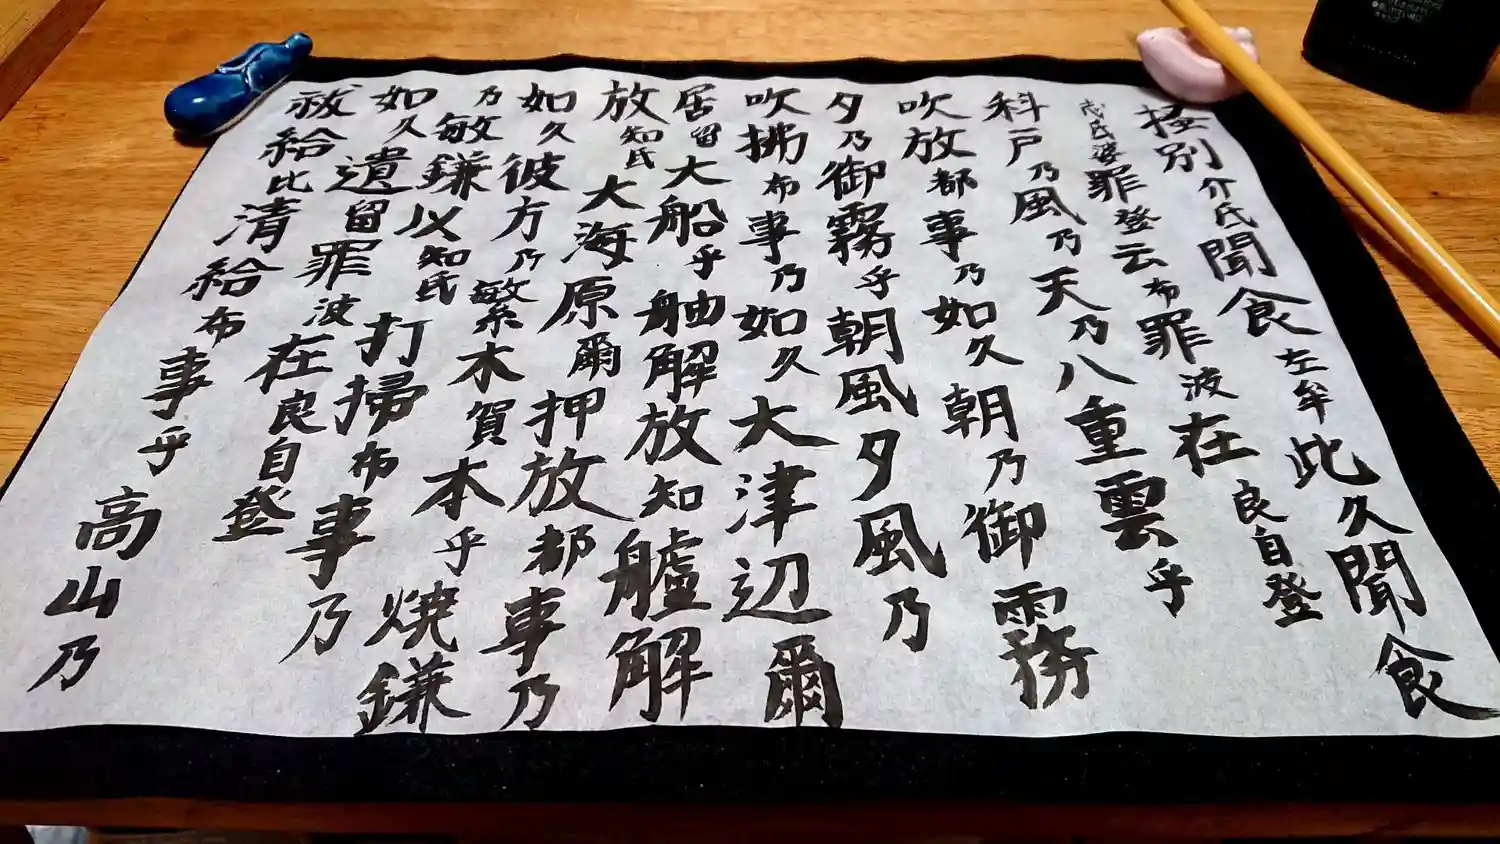 掻別介氏聞食左牟此久聞食
志氏婆罪登云布罪波在良自登
科戸乃風乃天乃八重雲乎
吹放都事乃如久朝乃御霧
夕乃御霧乎朝風夕風乃
吹拂布事乃如久大津辺爾
居留大船乎舳解放知艫解
放知氏大海原爾押放都事乃
如久彼方乃繁木賀本乎焼鎌
乃敏鎌以知氏打掃布事乃
如久遺留罪波在良自登
祓給比清給布事乎高山乃